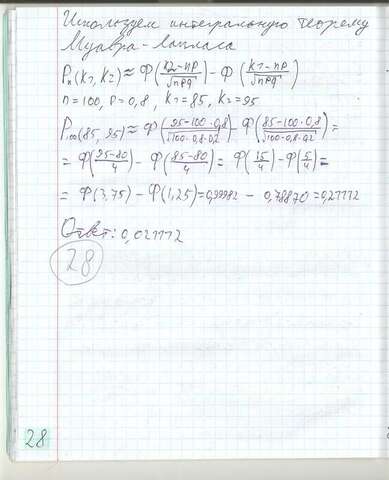 Используем интегральную теорему
Муавра-Лапласа
Pₙ(k₁, k₂) ≈ Ф((k₂-np)/√npq) - Ф((k₁-np)/√npq)
n=100, p=0,8, k₁=85, k₂=95
P₁₀₀(85, 95) ≈ Ф((95-100·0,8)/√100·0,8·0,2) - Ф((85-100·0,8)/√100·0,8·0,2) =
= Ф((95-80)/4) - Ф((85-80)/4) = Ф(15/4) - Ф(5/4) =
= Ф(3,75) - Ф(1,25) = 0,99982 - 0,78870 = 0,21112
Ответ: 0,021112
28
28